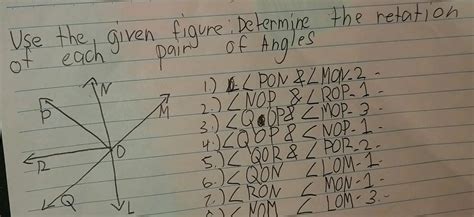 Use the given figure: Determine the retation
of each pair of Angles
N
P
M
O
R
Q
L
1.) ∠PON & ∠MON-2-
2.) ∠NOP & ∠ROP-1-
3.) ∠QOP & ∠MOP-3-
4.) ∠QOP & ∠NOP-1-
5.) ∠QOR & ∠POR-2-
6.) ∠QON ∠LOM-1-
7.) ∠RON ∠MON-1-
∠NOM ∠LOM-3-